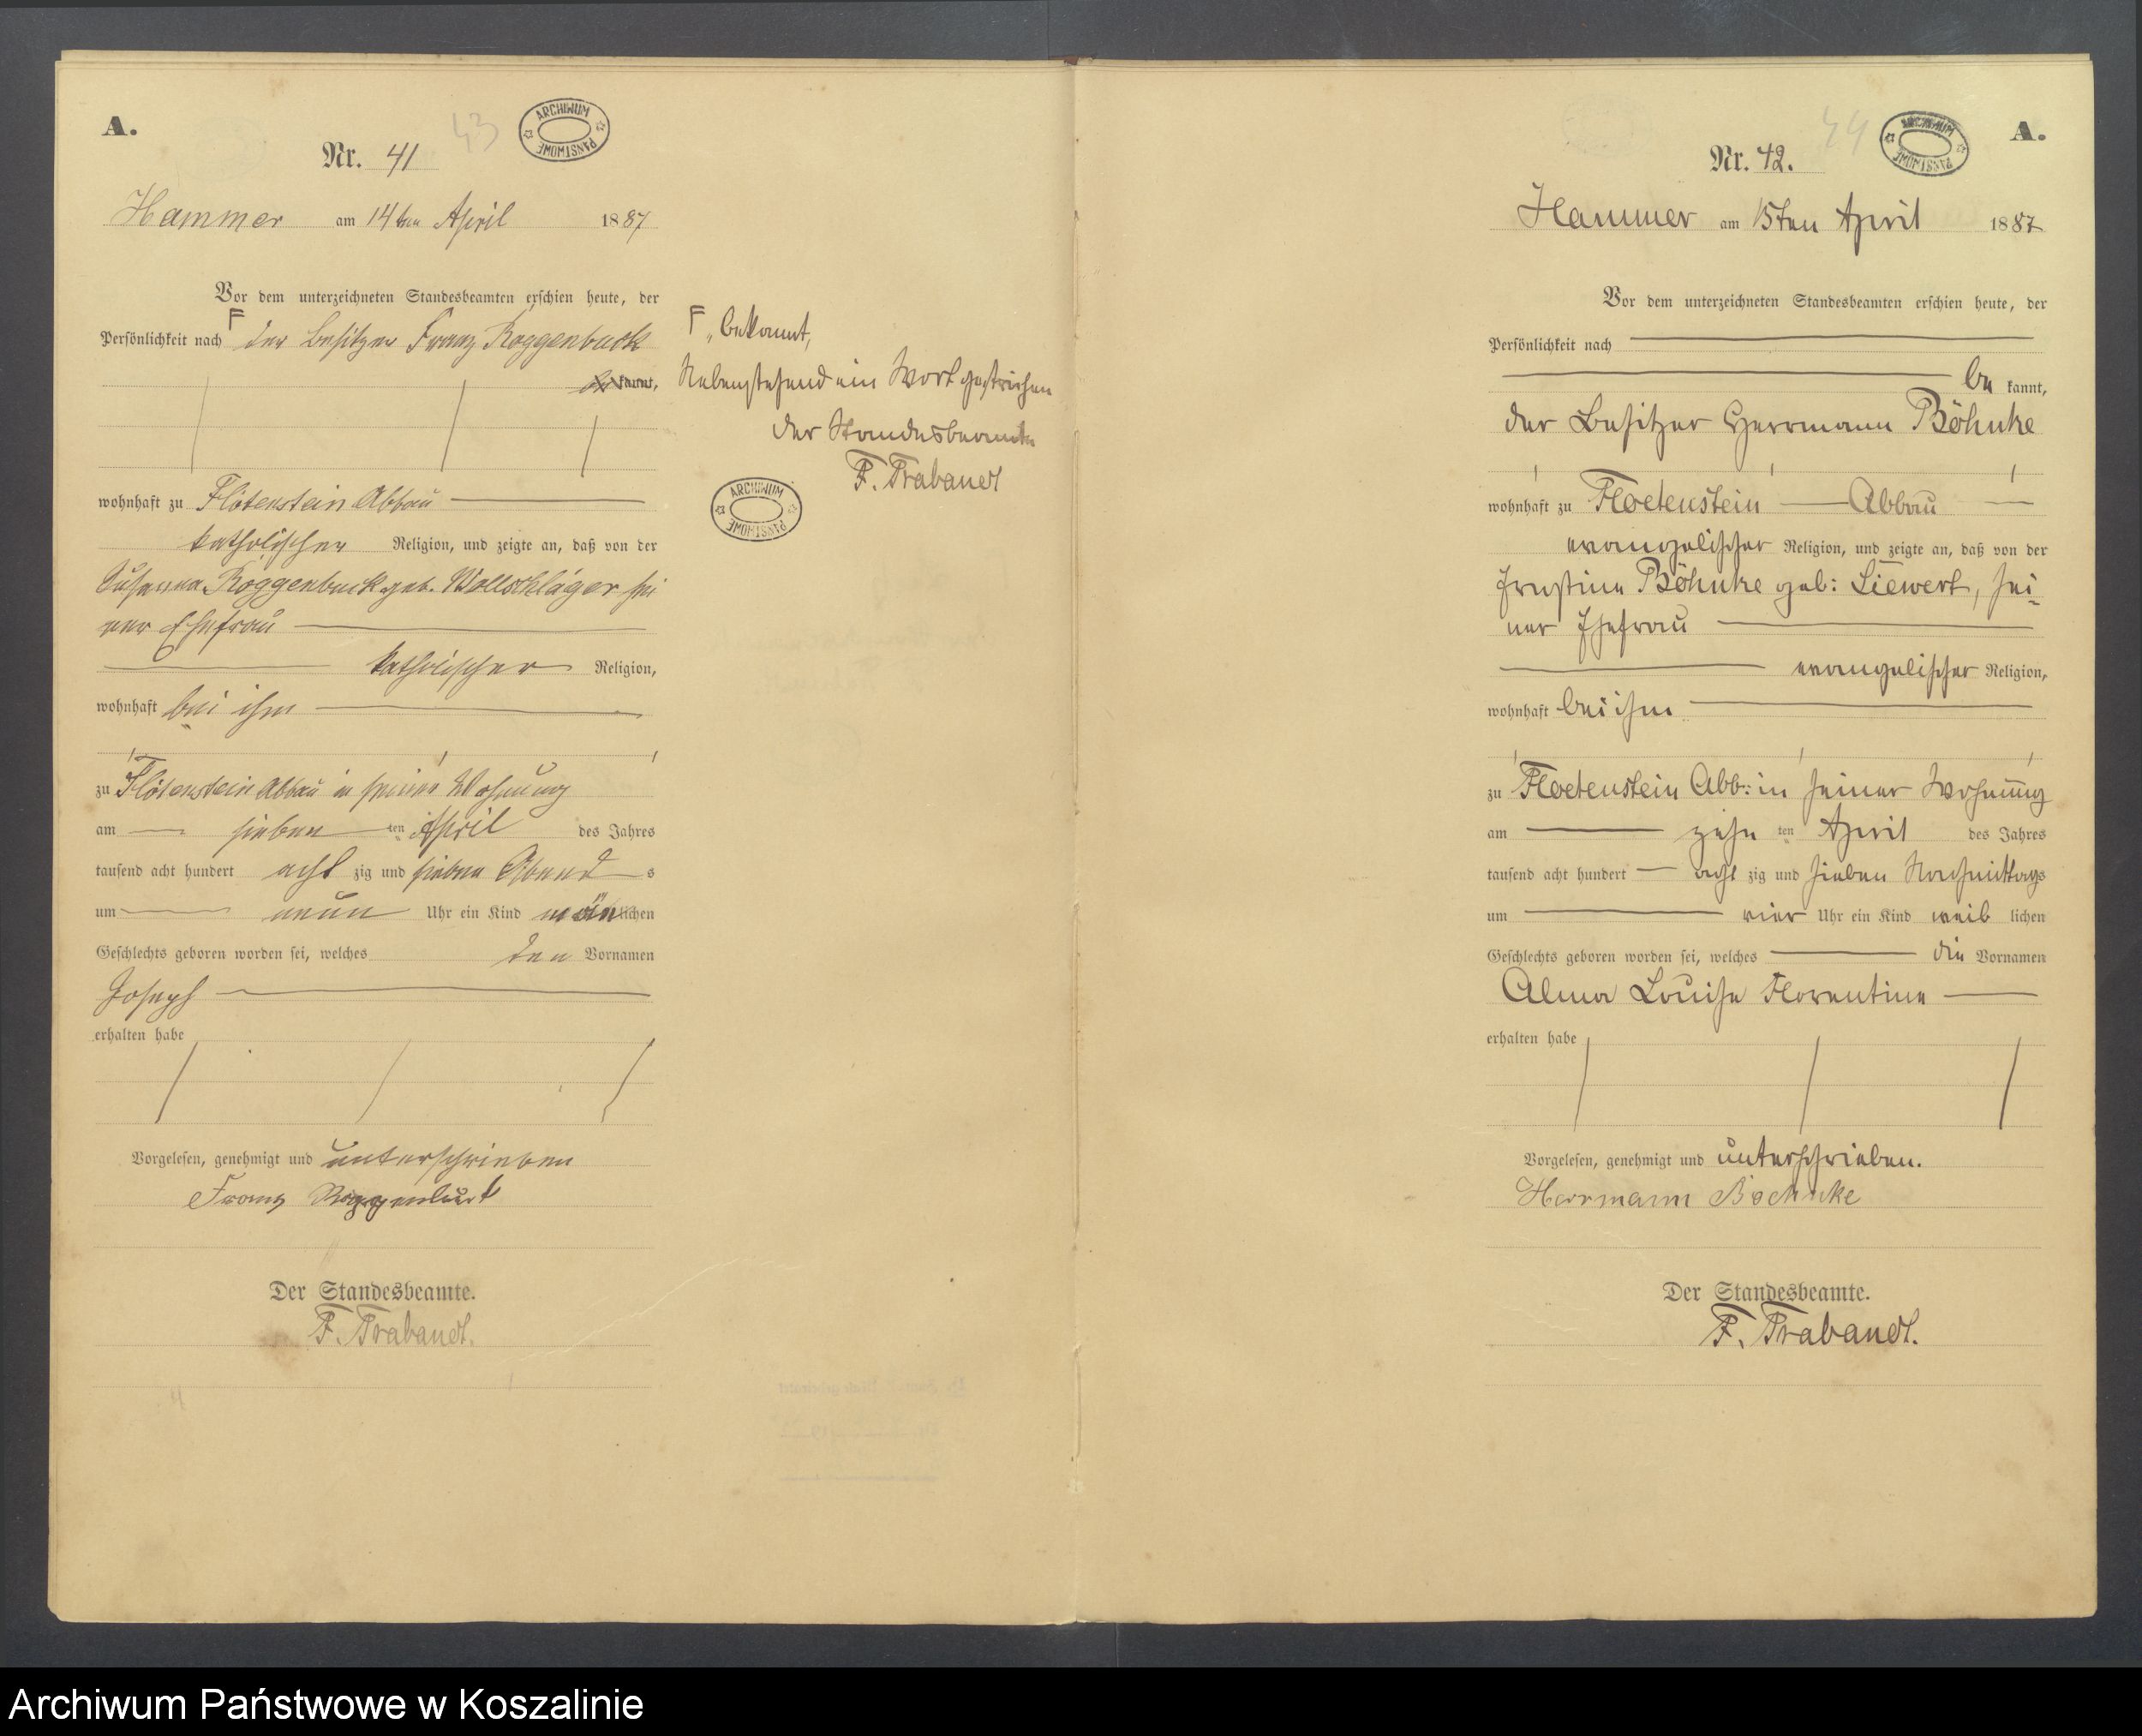 A.
43
ARCHIWUM PAŃSTWOWE
Nr. 41
Hammer am 14ten April 1887
Vor dem unterzeichneten Standesbeamten erschien heute, der
Persönlichkeit nach F der Besitzer Franz Roggenbuck
kannt,
wohnhaft zu Flötenstein Abbau
katholischer Religion, und zeigte an, daß von der
Susanna Roggenbuck geb. Wollschläger sei
ner Ehefrau
katholischer Religion,
wohnhaft bei ihm
zu Flötenstein Abbau in seiner Wohnung
am sieben ten April des Jahres
tausend acht hundert acht zig und sieben Abend s
um neun Uhr ein Kind män lichen
Geschlechts geboren worden sei, welches den Vornamen
Joseph
erhalten habe
Vorgelesen, genehmigt und unterschrieben
Franz Roggenbuck
Der Standesbeamte.
F. Trabandt.
F „bekannt,
Nebenstehend ein Wort gestrichen
der Standesbeamte
F. Trabandt
ARCHIWUM PAŃSTWOWE
A.
44
ARCHIWUM PAŃSTWOWE
Nr. 42.
Hammer am 15ten April 1887
Vor dem unterzeichneten Standesbeamten erschien heute, der
Persönlichkeit nach
be kannt,
der Besitzer Herrmann Böhnke
wohnhaft zu Floetenstein Abbau
evangelischer Religion, und zeigte an, daß von der
Ernstine Böhnke geb: Liewert, sei-
ner Ehefrau
evangelischer Religion,
wohnhaft bei ihm
zu Floetenstein Abb: in seiner Wohnung
am zehn ten April des Jahres
tausend acht hundert acht zig und sieben Nachmittags
um vier Uhr ein Kind weib lichen
Geschlechts geboren worden sei, welches die Vornamen
Alma Louise Florentine
erhalten habe
Vorgelesen, genehmigt und unterschrieben.
Herrmann Boehnke
Der Standesbeamte.
F. Trabandt.
Archiwum Państwowe w Koszalinie